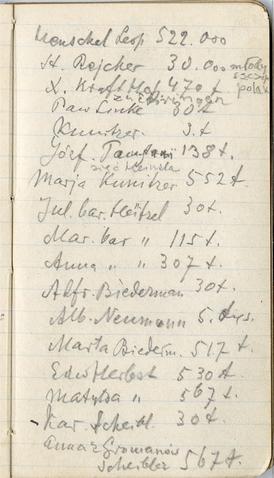 Henschel Leop 522.000
A. Rejcher 30.000 młody
X. Kraft Hof 470 t polak
Paw Linke 30 t
Kunitzer 3. t
Józ. 138 t.
Marja Kunitzer 552 t.
Jul. bar. Heitzel 30 t.
Mar. bar " 115 t.
Anna " " 307 t.
Alfr. Biederman 30 t.
Alb. Neumann 5. tys.
Marta Biederm. 517 t.
Edw Herbst 530 t.
Matylda " 567 t.
Kar. Scheibl. 30 t.
Anna z Gromanów
Scheibler 567 t.